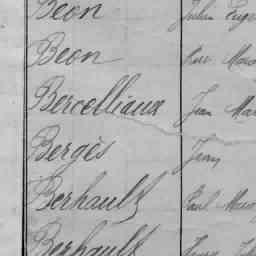 Beon Julien Euge
Beon
Bercelliaux Jean Mar
Bergès Jean
Berhault Paul Marie
Berhault